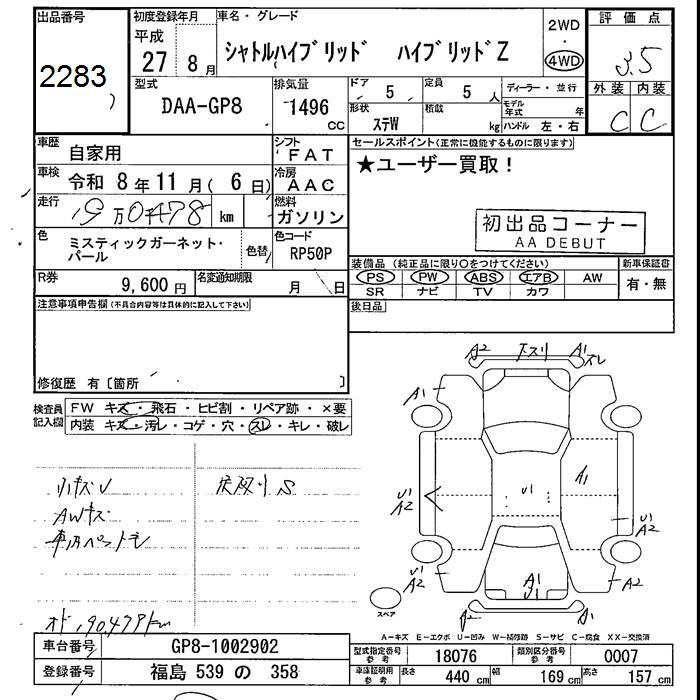 出品番号
2283
初度登録年月
平成
27 8月
車名・グレード
シャトルハイブリッド ハイブリッドZ
2WD
4WD
評価点
3.5
外装 内装
C C
型式
DAA-GP8
排気量
1496 CC
ドア
5
定員
5 人
形状
ステW
積載
kg
ディーラー・並行
モデル年式 年
ハンドル 左・右
車歴
自家用
シフト
FAT
車検
令和 8年 11月( 6日)
冷房
AAC
走行
19万0千478 km
燃料
ガソリン
色
ミスティックガーネット・パール
色替
色コード
RP50P
R券
9,600 円
名変通知期限
月 日
セールスポイント(正常に機能するものに限ります)
★ユーザー買取!
初出品コーナー
AA DEBUT
装備品(純正品に限り○をつけてください)
PS PW ABS エアB AW
SR ナビ TV カワ
新車保証書
有・無
後日品
注意事項申告欄(不具合内容等は具体的に記入して下さい)
修復歴 有〔箇所 〕
検査員記入欄
FW キズ・飛石・ヒビ割・リペア跡・×要
内装 キズ・汚レ・コゲ・穴・スレ・キレ・破レ
小キズU
AWキズ
車内ペット毛
下廻りS
オド 190478km
A2 下スリ A1 スレ
A1
A1
U1
U1
A2
U1
A2
A2
A2
A1
A2
A1
スペア
A-キズ E-エクボ U-凹み W-補修跡 S-サビ C-腐食 XX-交換済
車台番号
GP8-1002902
登録番号
福島 539 の 358
型式指定番号
参考
18076
類別区分番号
参考
0007
車庫証明用
参考
長さ 440 cm
幅 169 cm
高さ 157 cm